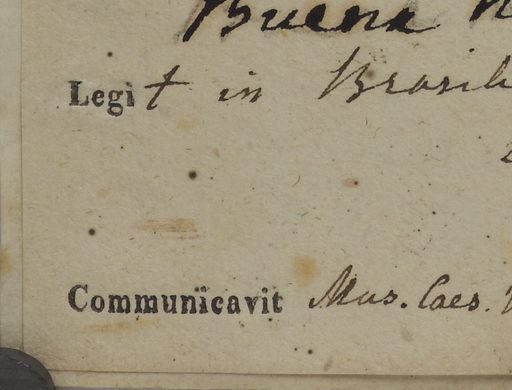 Buena
Legit in Brasil
Communicavit Mus. Caes.